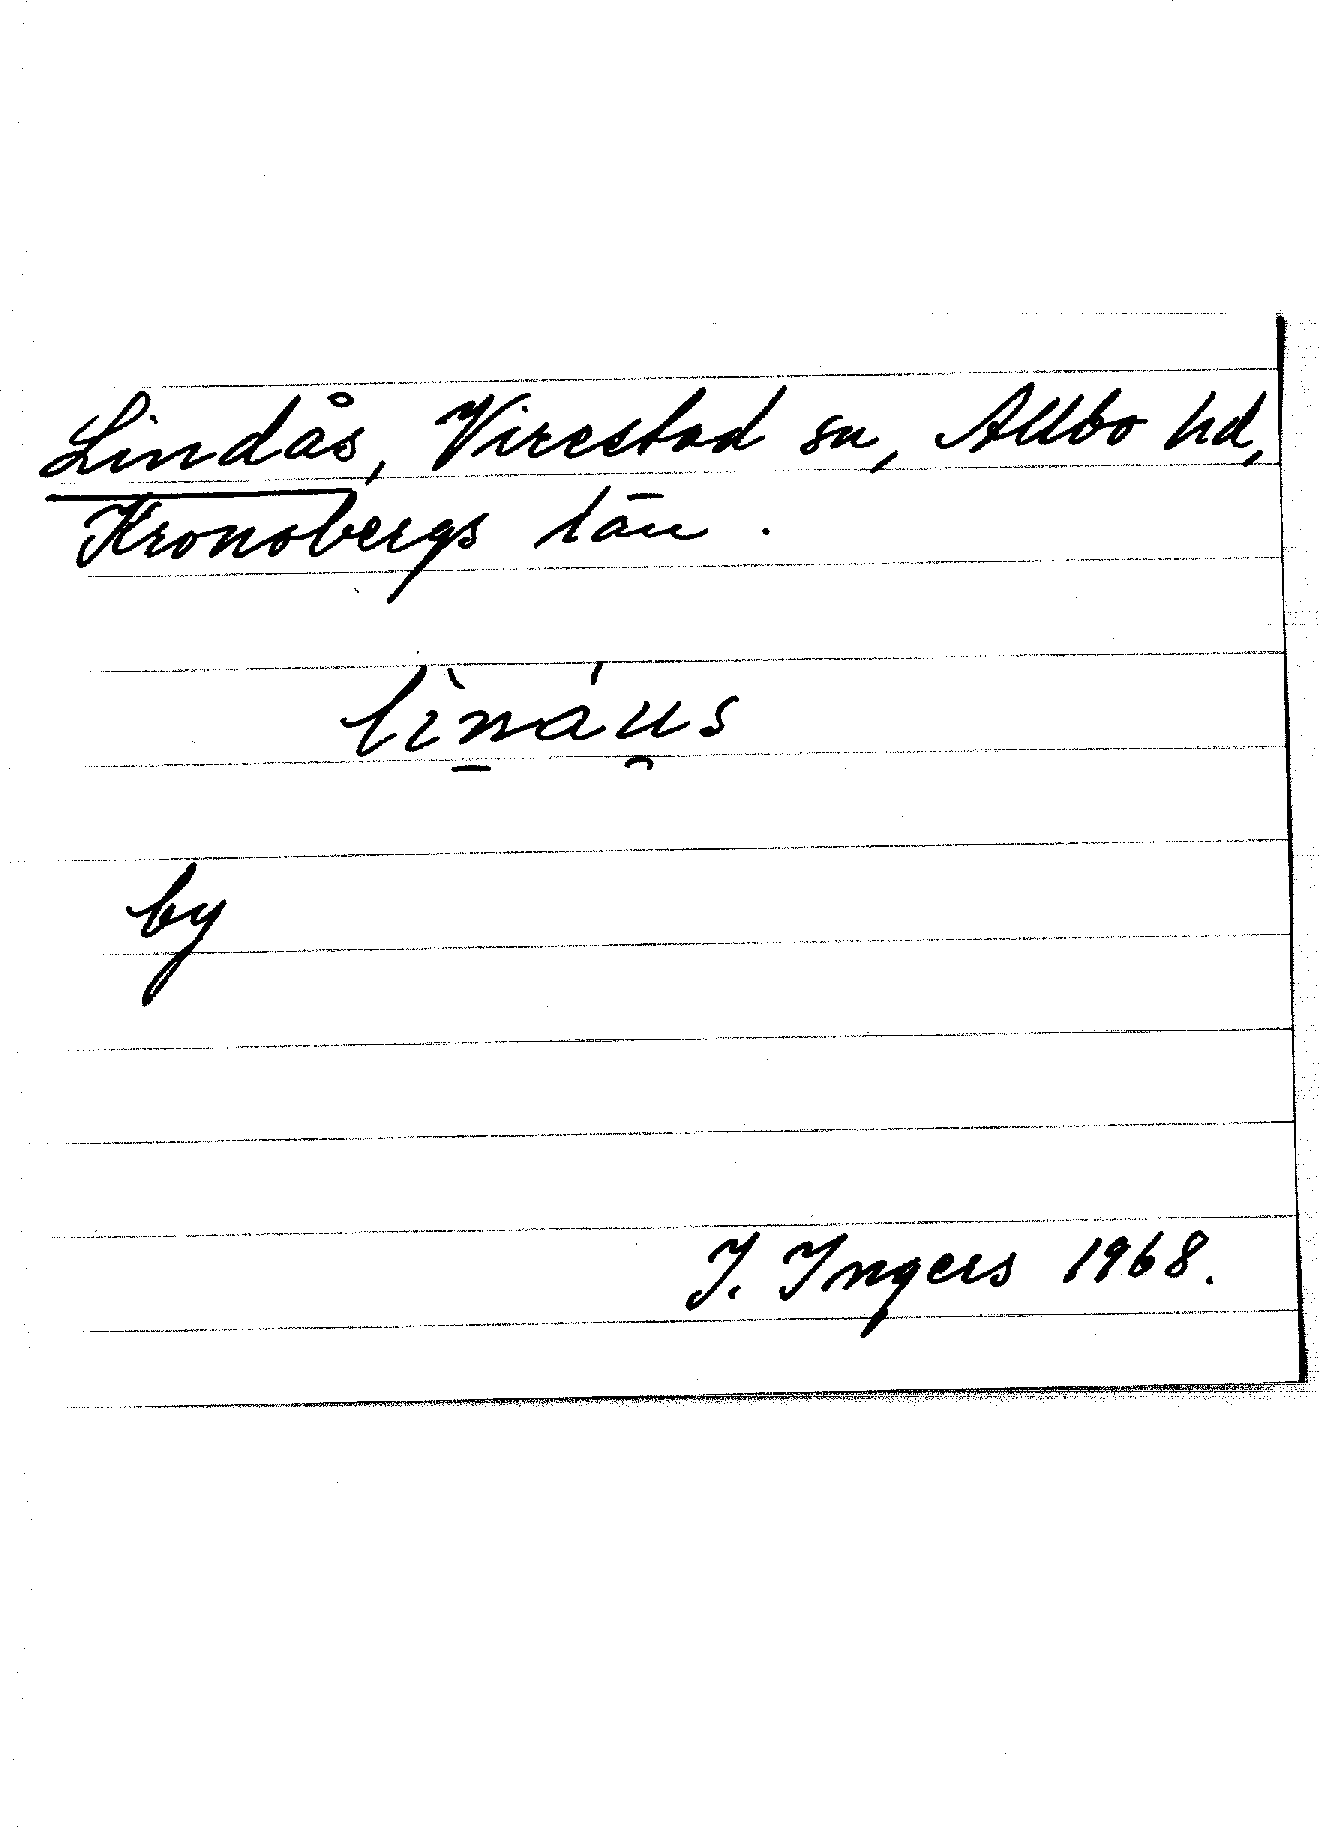 Lindås, Virestad sn, Allbo hd,
Kronobergs län.
lìn̠áu̯s
by
I. Ingers 1968.